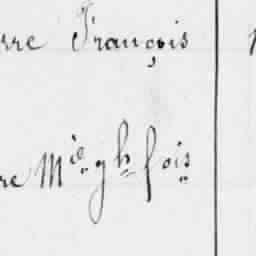 rre François
re Mie gh fois